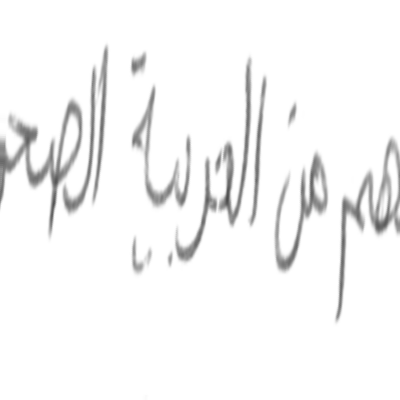 هم من العربية الصحر